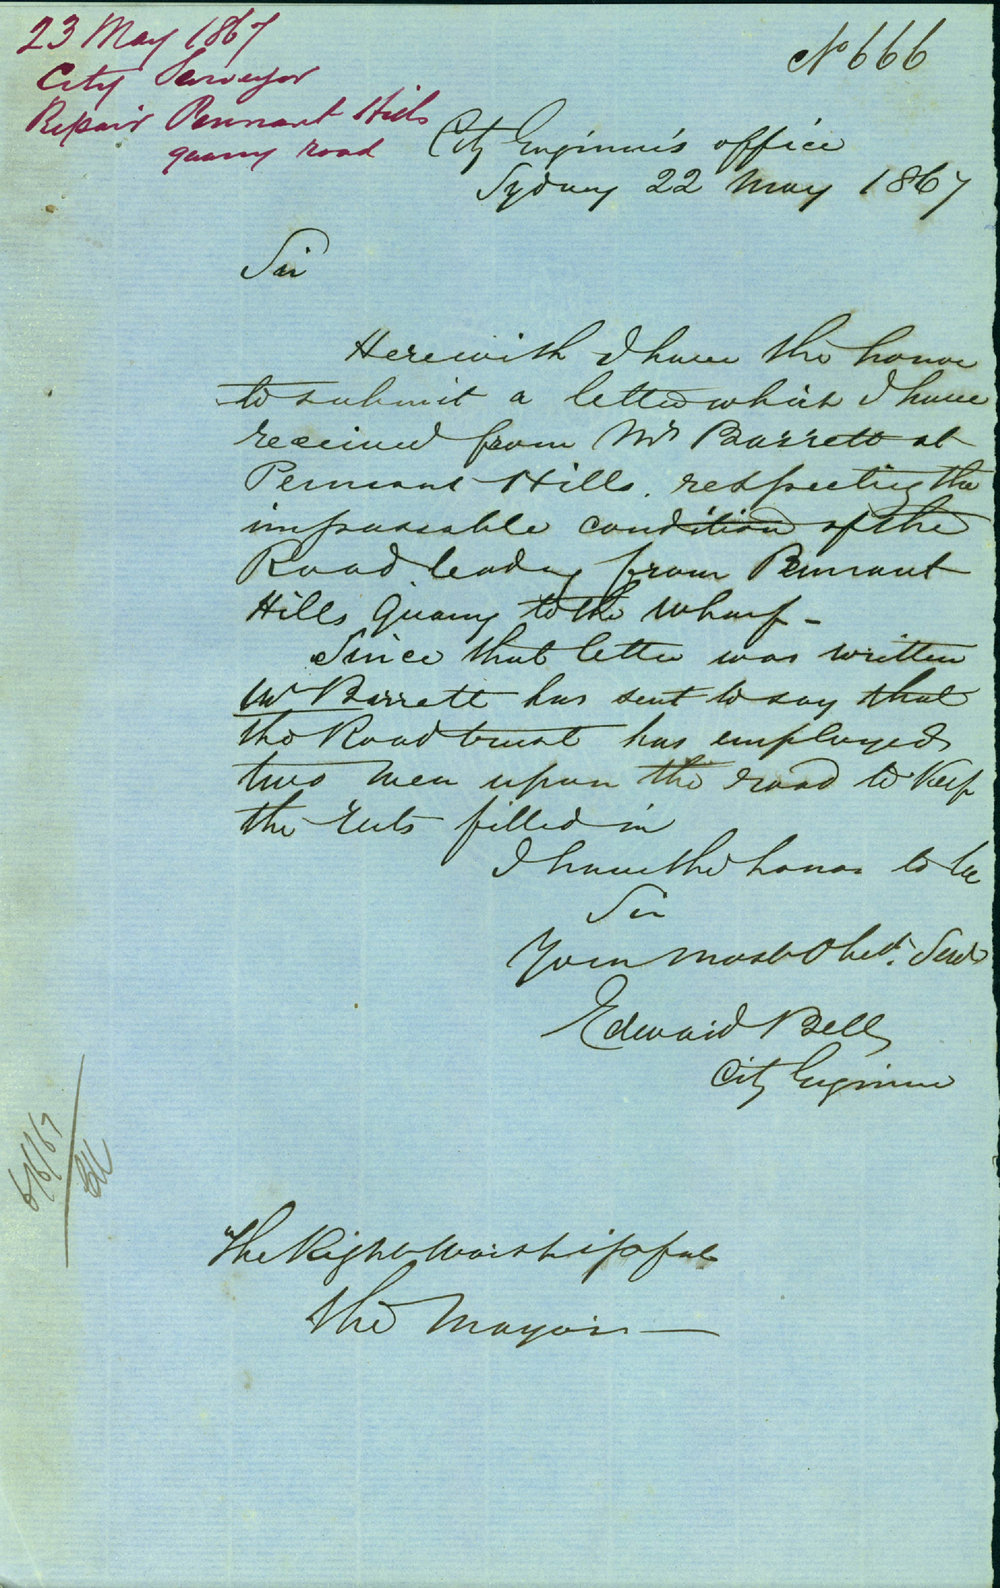 23 May 1867
City Surveyor
Repair Pennant Hills
quarry road
No 666
City Engineer's office
Sydney 22 May 1867
Sir
Herewith I have the honor
to submit a letter which I have
received from Mr Barrett at
Pennant Hills. respecting the
impassable condition of the
Road leading from Pennant
Hills Quarry to the Wharf -
Since that letter was written
Mr Barrett has sent to say that
the Road trust has employed
two men upon the road to keep
the ruts filled in
I have the honor to be
Sir
Your most Obedt. Servt
Edward Bell
City Engineer
6/6/67
The Right Worshipful
The Mayor